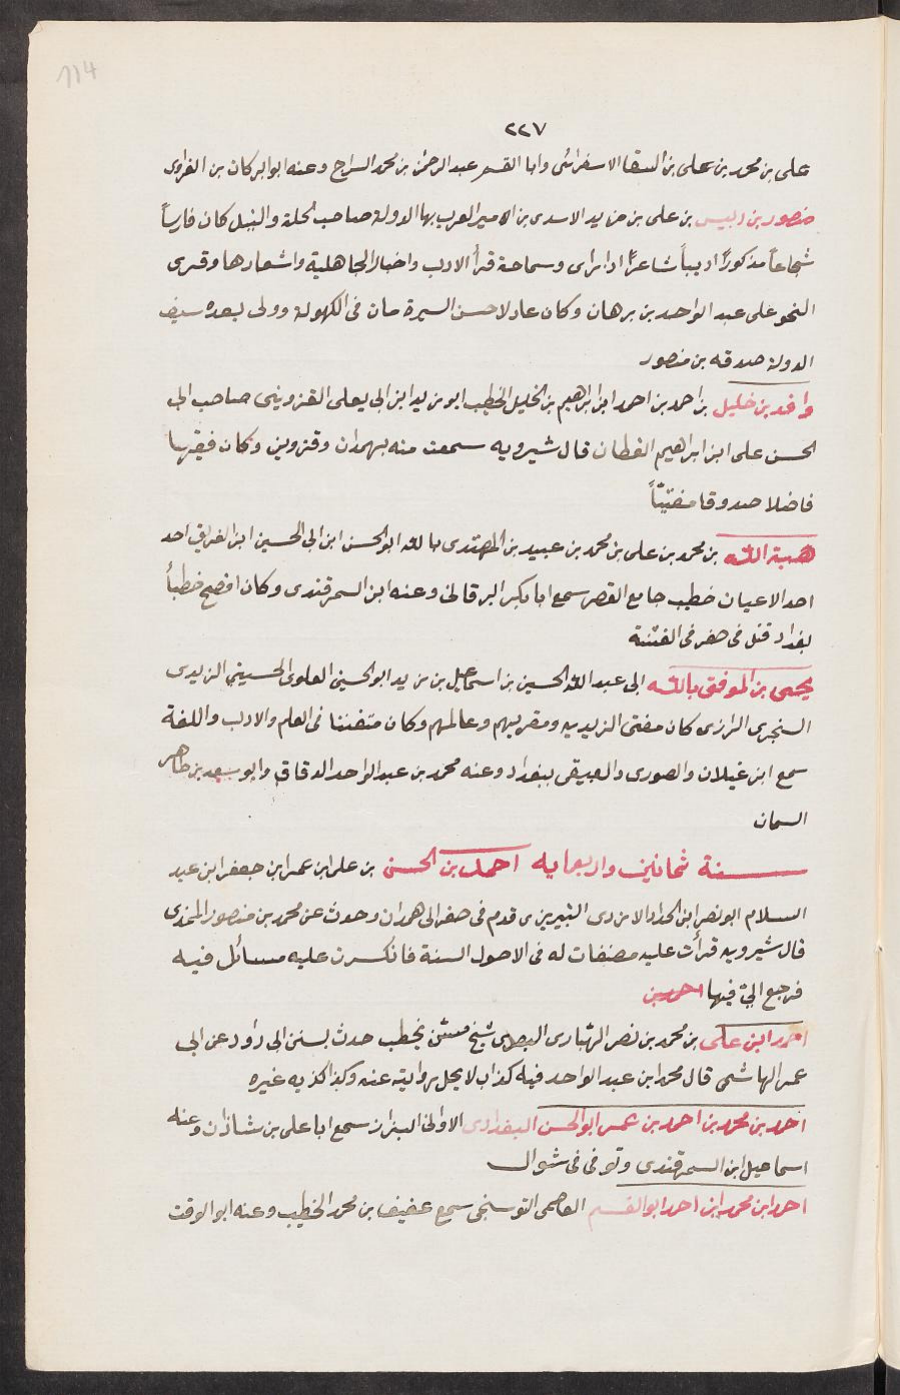 114
٢٢٧
على بن محمد بن على بن السقا الاسفرائنى وابا القسم عبد الرحمن بن محمد السراج وعنه ابو البركات بن الفراوى
منصور بن دبيس بن على بن مزيد الاسدى بن الامير العرب بها الدولة صاحب الحلة والنيل كان فارساً
شجاعاً مذكوراً اديباً شاعراً ذا راى وسماحة قرأ الادب واخبار الجاهلية واشعارها وقرى
النحو على عبد الواحد بن برهان وكان عادلا حسن السيرة مات فى الكهولة وولى بعده سيف
الدولة صدقه بن منصور
وافد بن خليل بن احمد بن احمد ابن ابراهيم بن الخليل الخطيب ابو زيد ابن ابى يعلى القزوينى صاحب ابى
الحسن على ابن ابراهيم القطان قال شيرويه سمعت منه بهمدان وقزوين وكان فقيها
فاضلا صدوقا متفنناً
هبة الله بن محمد بن على بن محمد بن عبيد بن المهتدى بالله ابو الحسن ابن ابى الحسين ابن الغريق احد
احد الاعيان خطيب جامع القصر سمع ابا بكر البرقانى وعنه ابن السمرقندى وكان افصح خطباً
بغداد قتل فى صفر فى الفتنة
يحيى بن الموفق بالله ابى عبد الله الحسين بن اسماعيل بن زيد ابو الحسين العلوى الحسينى الزيدى
الشجرى الرازى كان مفتى الزيديه ومقريهم وعالمهم وكان متفننا فى العلم والادب واللغة
سمع ابن غيلان والصورى والعتيقى ببغداد وعنه محمد بن عبد الواحد الدقاق وابو سعد بن طاهر
السمان
سنة ثمانين واربعمايه احمد بن الحسن بن على ابن عمر ابن جعفر ابن عبد
السلام ابو نصر ابن الحداد الازدى التبريزى قدم فى صفر الى همدان وحدث عن محمد بن منصور
قال شيرويه قرأت عليه مصنفات له فى الاصول السنة فانكسرت عليه مسائل فيه
فرجع الىّ فيها احمد بن
احمد ابن على بن محمد بن نصر الهبارى البصرى شيخ مسن يخطب حدث بسنن ابى داود عن ابى
عمر الهاشمى قال محمد ابن عبد الواحد فيه كذاب لا يحل روايته عنه وكذا كذبه غيره
احمد بن محمد بن احمد بن عمر ابو الحسن البغدادى الاوانى البزاز سمع ابا على بن شاذان وعنه
اسماعيل ابن السمرقندى وتوفى فى شوال
احمد ابن محمد ابن احمد ابو القسم العاصمى التوسنجى سمع عفيف بن محمد الخطيب وعنه ابو الوقت